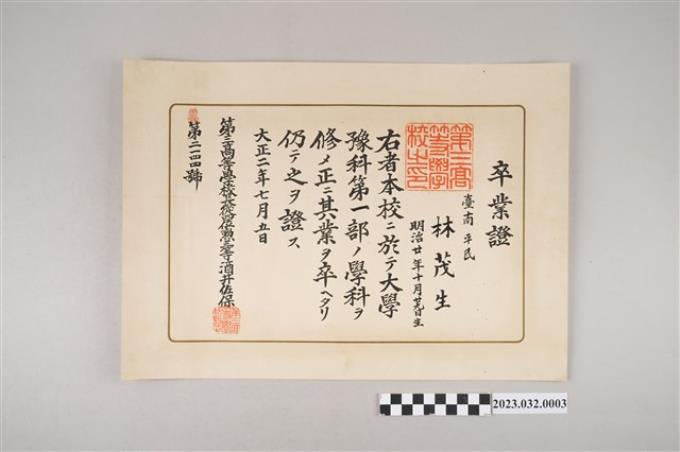 卒業證
臺南 平民
林茂生
明治廿年十月廿九日生
右者本校ニ於テ大學
豫科第一部ノ學科ヲ
修メ正ニ其業ヲ卒ヘタリ
仍テ之ヲ證ス
大正二年七月五日
第三高等學校長從四位勲三等酒井佐保
第二一四四號
第三高
等學
校之印
2023.032.0003